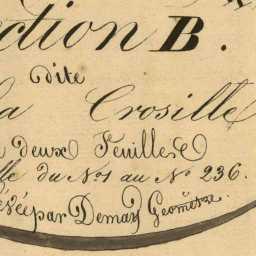 ction B.
dite
la Crosille
deux Feuilles
lle du N°1 au N° 236.
evée par Demay Géomètre.